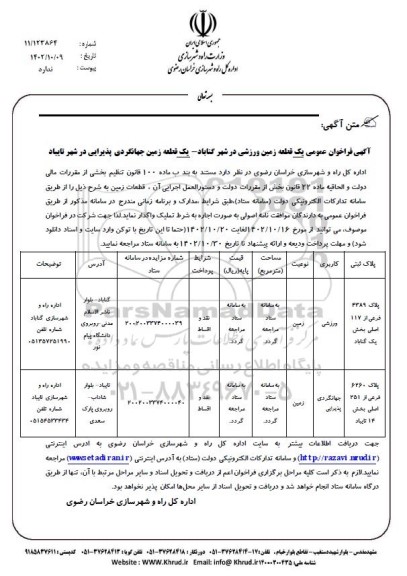 جمهوری اسلامی ایران
وزارت راه و شهرسازی
اداره کل راه و شهرسازی خراسان رضوی
شماره : ۱۱/۱۲۳۸۶۴
تاریخ : ۱۴۰۲/۱۰/۰۹
پیوست : ندارد
بسمه تعالی
متن آگهی:
آگهی فراخوان عمومی یک قطعه زمین ورزشی در شهر گناباد– یک قطعه زمین جهانگردی پذیرایی در شهر تایباد
اداره کل راه و شهرسازی خراسان رضوی در نظر دارد مستند به بند ب ماده ۱۰۰ قانون تنظیم بخشی از مقررات مالی
دولت و الحاقیه ماده ۲۲ قانون بخش از مقررات دولت و دستورالعمل اجرایی آن ، قطعات زمین به شرح ذیل را از طریق
سامانه تدارکات الکترونیکی دولت (سامانه ستاد) طبق شرایط مدارک و برنامه زمانی مندرج در سامانه مذکور از طریق
فراخوان عمومی به دارندگان موافقت نامه اصولی به صورت اجاره به شرط تملیک واگذار نماید. لذا جهت شرکت در فراخوان
موصوف، می توانند از مورخ ۱۴۰۲/۱۰/۱۶ لغایت ۱۴۰۲/۱۰/۲۰ (حتما تا این تاریخ با توکن وارد سایت و اسناد دانلود
شود) و مهلت پرداخت ودیعه و ارائه پیشنهاد تا تاریخ ۱۴۰۲/۱۰/۳۰ به سامانه ستاد مراجعه نمایید.
پلاک ثبتی کاربری نوعیت مساحت (مترمربع) قیمت پایه(ریال) شرایط پرداخت شماره مزایده در سامانه ستاد آدرس توضیحات
پلاک ۴۳۸۹ فرعی از ۱۱۷ اصلی بخش یک گناباد ورزشی زمین به سامانه ستاد مراجعه گردد. به سامانه ستاد مراجعه گردد. نقد و اقساط ۲۰۰۲۰۰۳۳۷۴۰۰۰۰۳۹ گناباد- بلوار ناصر الاسلام مدنی روبروی دانشگاه پیام نور اداره راه و شهرسازی گناباد شماره تلفن ۰۵۱۵۷۲۵۱۹۹۰
پلاک ۶۲۶۰ فرعی از ۲۵۱ اصلی بخش ۱۴ تایباد جهانگردی پذیرایی زمین به سامانه ستاد مراجعه گردد. به سامانه ستاد مراجعه گردد. نقد و اقساط ۲۰۰۲۰۰۳۳۷۴۰۰۰۰۴۰ تایباد- بلوار شاداب- روبروی پارک سعدی اداره راه و شهرسازی تایباد شماره تلفن ۰۵۱۵۴۵۳۳۴۳۴
ParsNamadData
پایگاه اطلاع رسانی مناقصه و مزایده
۰۲۱-۸۸۳۴۹۶۷۰-۵
جهت دریافت اطلاعات بیشتر به سایت اداره کل راه و شهرسازی خراسان رضوی به ادرس اینترنتی
(http://razavi.mrud.ir) و سامانه تدارکات الکترونیکی دولت (ستاد) به آدرس اینترنتی (www.setadiran.ir) مراجعه
نمایید. لازم به ذکر است کلیه مراحل برگزاری فراخوان اعم از دریافت و تحویل اسناد و سایر مراحل مرتبط با آن، تنها از طریق
درگاه سامانه ستاد انجام خواهد شد و دریافت و تحویل اسناد از سایر محل‌ها امکان پذیر نخواهد بود.
اداره کل راه و شهرسازی خراسان رضوی
Website : WWW.Khrud.ir Email: info@ Khrud.ir